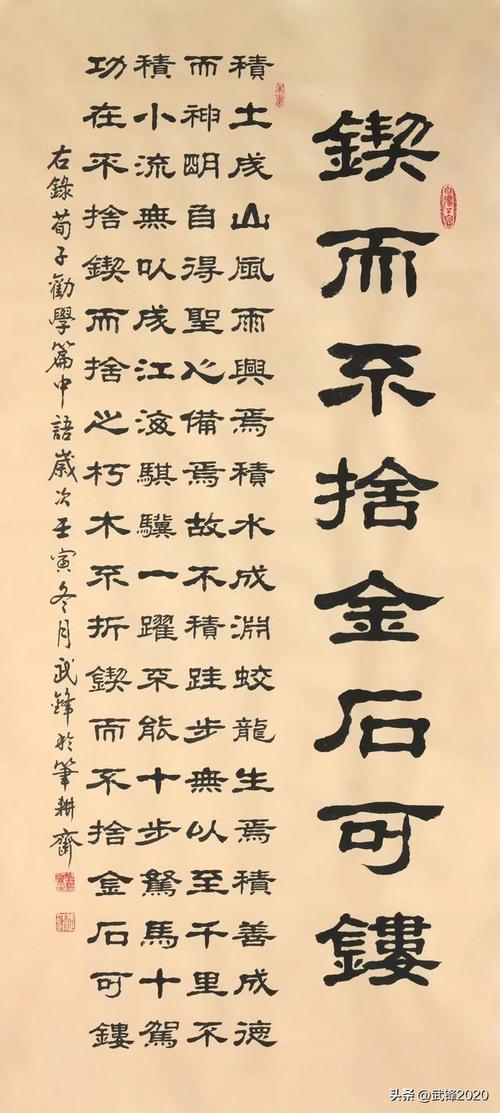 鍥而不捨金石可鏤
積土成山風雨興焉積水成淵蛟龍生焉積善成德
而神明自得聖心備焉故不積跬步無以至千里不
積小流無以成江海騏驥一躍不能十步駑馬十駕
功在不捨鍥而捨之朽木不折鍥而不捨金石可鏤
右錄荀子勸學篇中語歲次壬寅冬月武鋒於筆耕齋
头条 @武锋2020